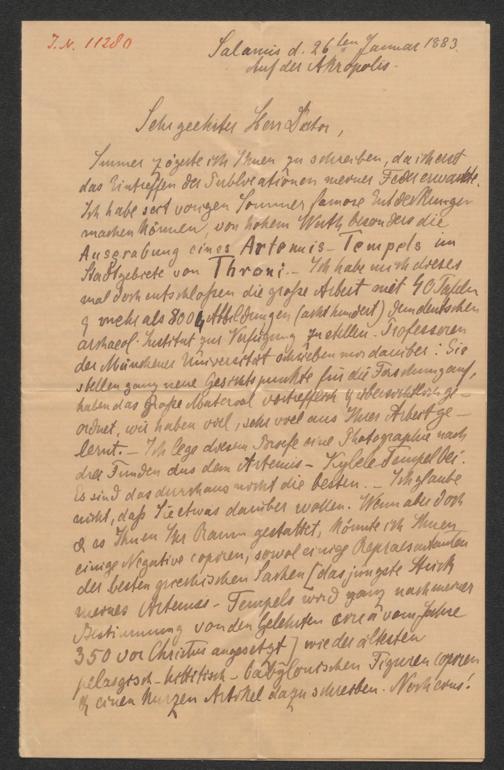 J.N. 11280
Salamis d. 26ten Januar 1883.
Auf der Akropolis.
Sehr geehrter Herr Doctor,
Immer zögerte ich Ihnen zu schreiben, da ich erst
das Eintreffen der Publicationen meiner Feder erwartete.
Ich habe seit vorigen Sommer famose Entdeckungen
machen können, von hohem Werth besonders die
Ausgrabung eines Artemis-Tempels im
Stadtgebiete von Throni. – Ich habe mich dieses
mal doch entschlossen die große Arbeit mit 40 Tafeln
& mehr als 800 Abbildungen (achthundert) dem deutschen
archaeol. Institut zur Verfügung zu stellen. Professoren
der Münchener Universität schrieben mir darüber: Sie
stellen ganz neue Gesichtspunkte für die Forschung auf,
haben das große Material vortrefflich & übersichtlich ge-
ordnet, wir haben viel, sehr viel aus Ihrer Arbeit ge-
lernt. – Ich lege diesem Briefe eine Photographie nach
drei Funden aus dem Artemis-Kybele Tempel bei.
Es sind das durchaus nicht die besten. – Ich glaube
nicht, daß Sie etwas darüber wollen. Wenn aber doch
& es Ihnen Ihr Raum gestattet, könnte ich Ihnen
einige Negative copiren, sowol einige Repraesentanten
der besten griechischen Sachen (das jüngste Stück
meines Artemis-Tempels wird ganz nach meiner
Bestimmung von den Gelehrten circa vom Jahre
350 vor Christus angesetzt) wie der ältesten
pelasgisch-hittitisch-babylonischen Figuren copiren
& einen kurzen Artikel dazu schreiben. Noch eins!